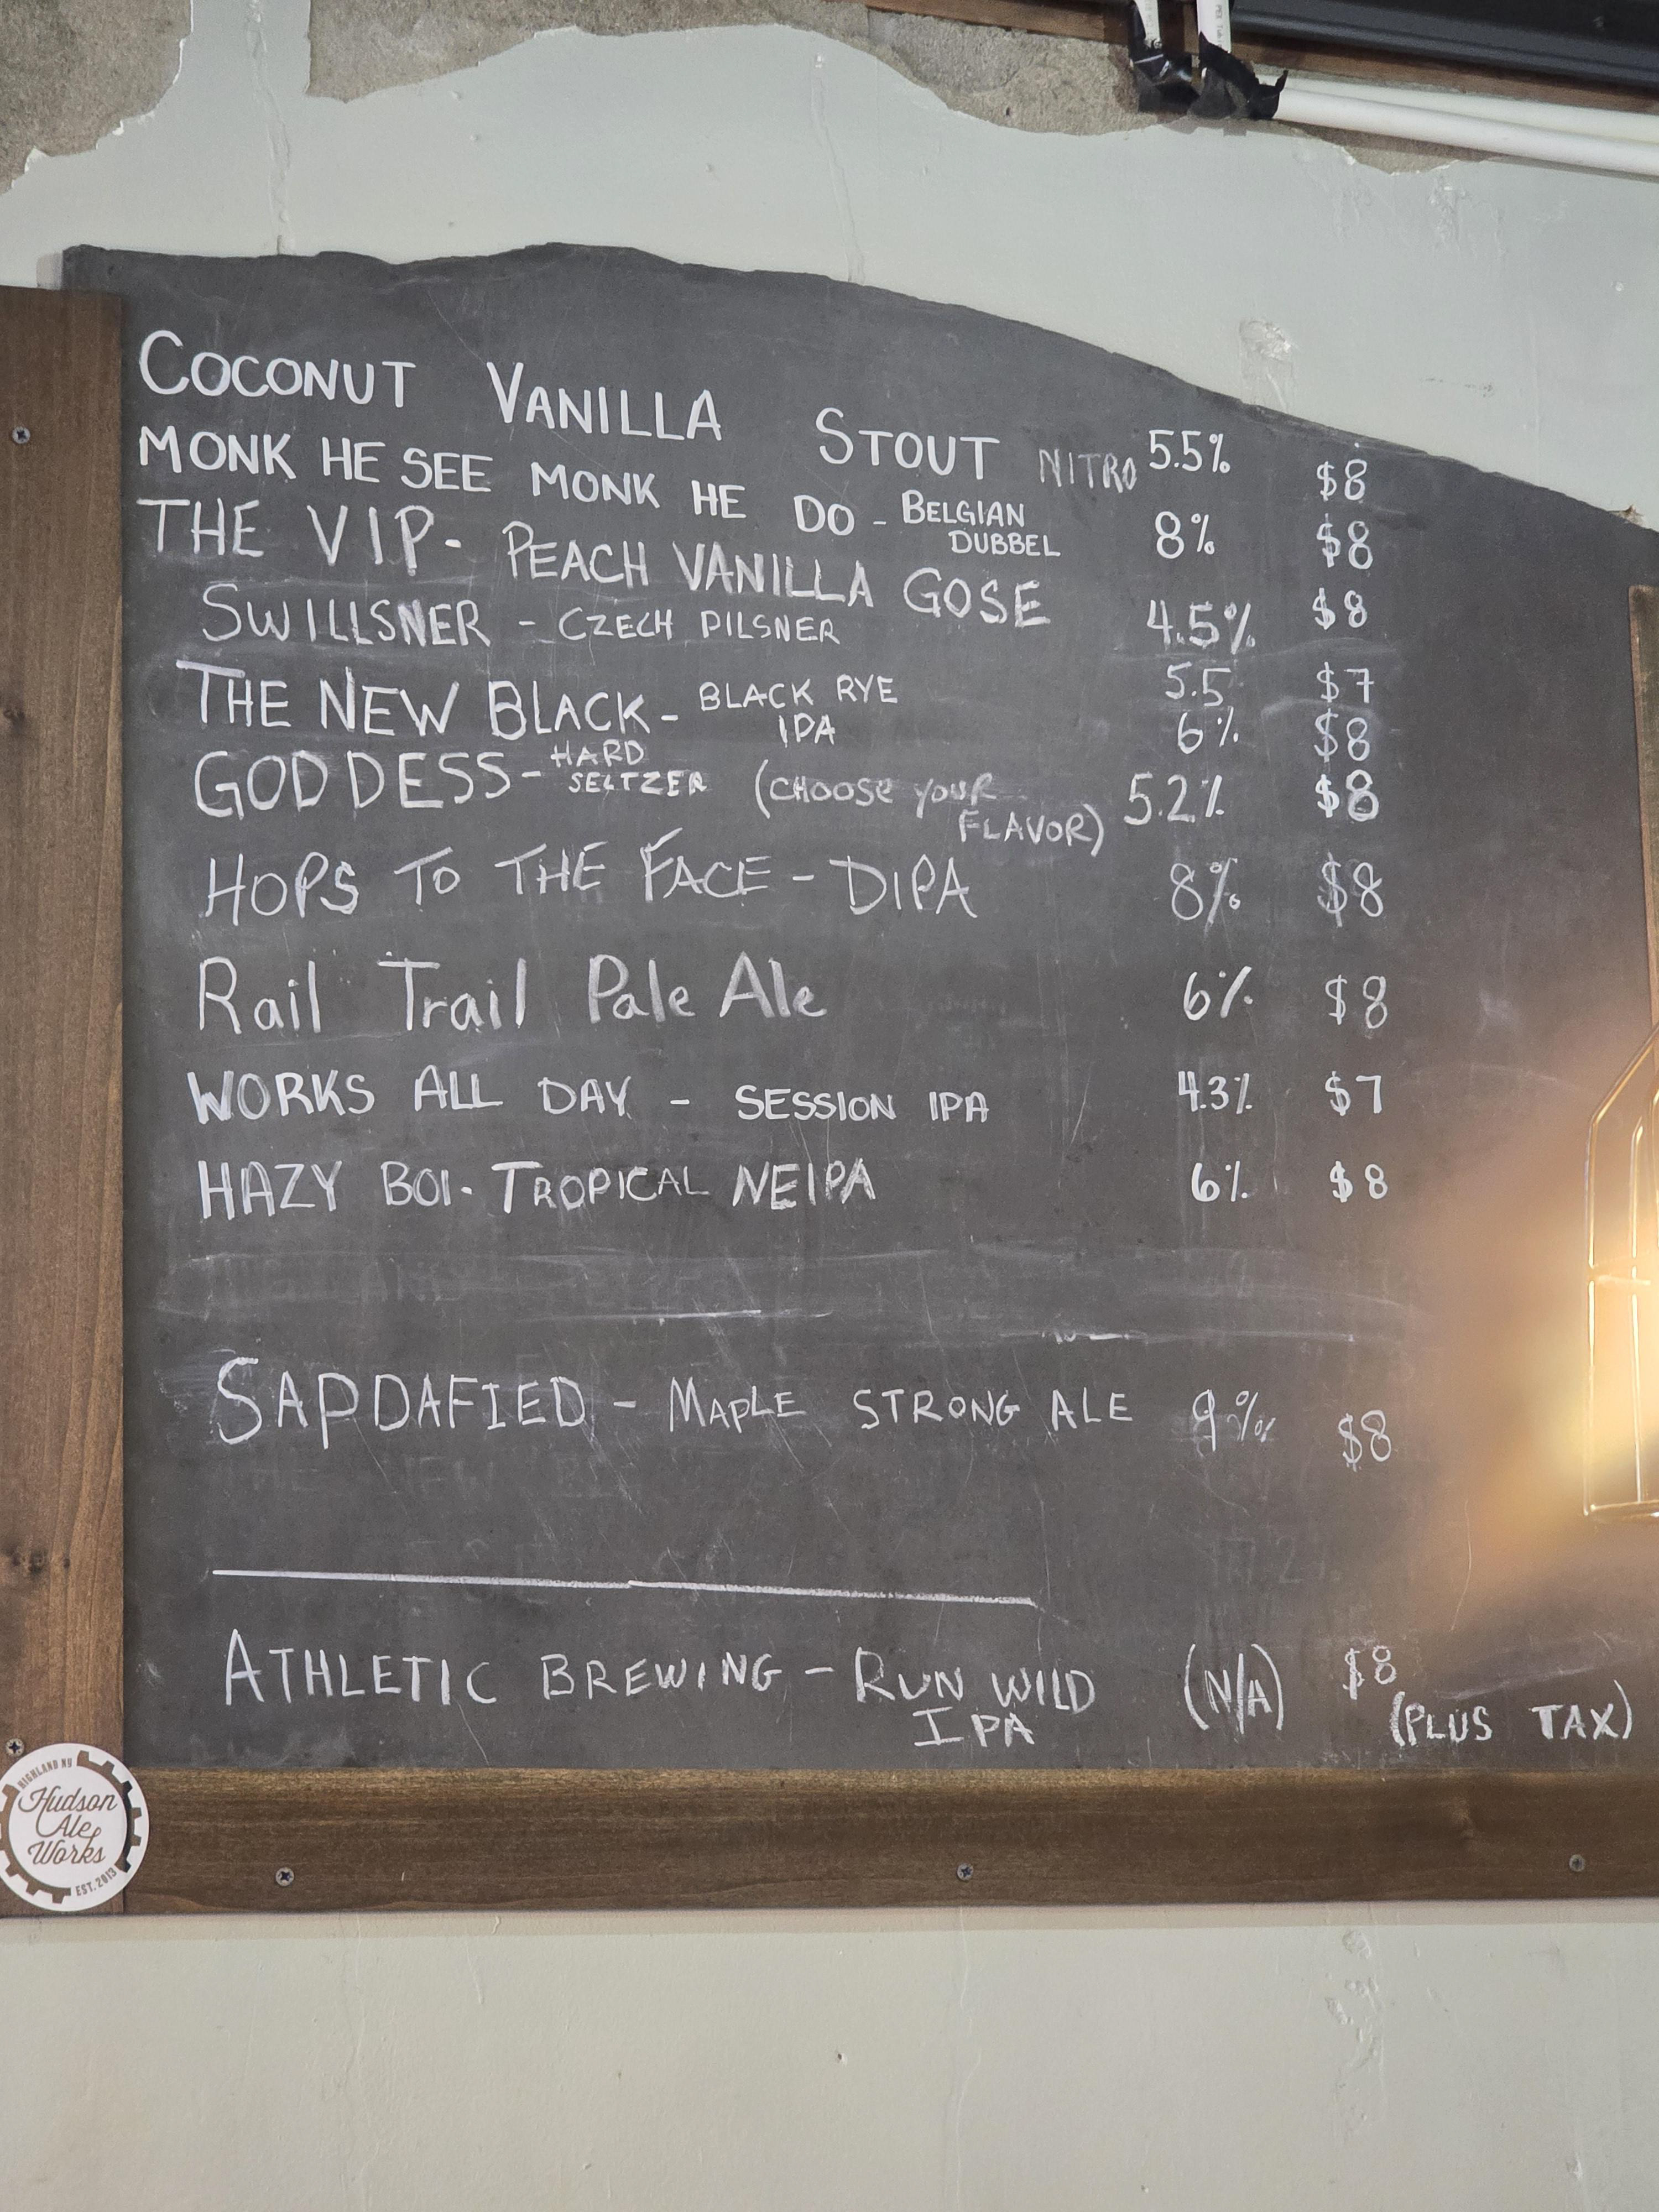 COCONUT VANILLA STOUT NITRO 5.5% $8
MONK HE SEE MONK HE DO - BELGIAN DUBBEL 8% $8
THE VIP - PEACH VANILLA GOSE 4.5% $8
SWILLSNER - CZECH PILSNER 5.5 $7
THE NEW BLACK - BLACK RYE IPA 6% $8
GODDESS - HARD SELTZER (CHOOSE YOUR FLAVOR) 5.2% $8
HOPS TO THE FACE - DIPA 8% $8
Rail Trail Pale Ale 6% $8
WORKS ALL DAY - SESSION IPA 4.3% $7
HAZY BOI - TROPICAL NEIPA 6% $8
SAPDAFIED - MAPLE STRONG ALE 9% $8
ATHLETIC BREWING - RUN WILD IPA (N/A) $8
(PLUS TAX)
HIGHLAND NY
Hudson
Ale
Works
EST. 2013